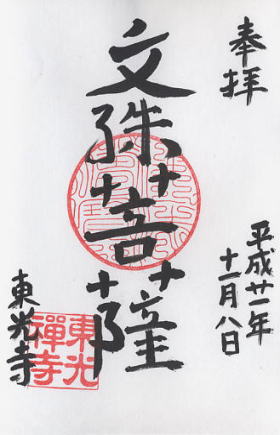 奉拝
平成廿一年
十一月八日
文殊菩薩
東光寺
東光
禅寺